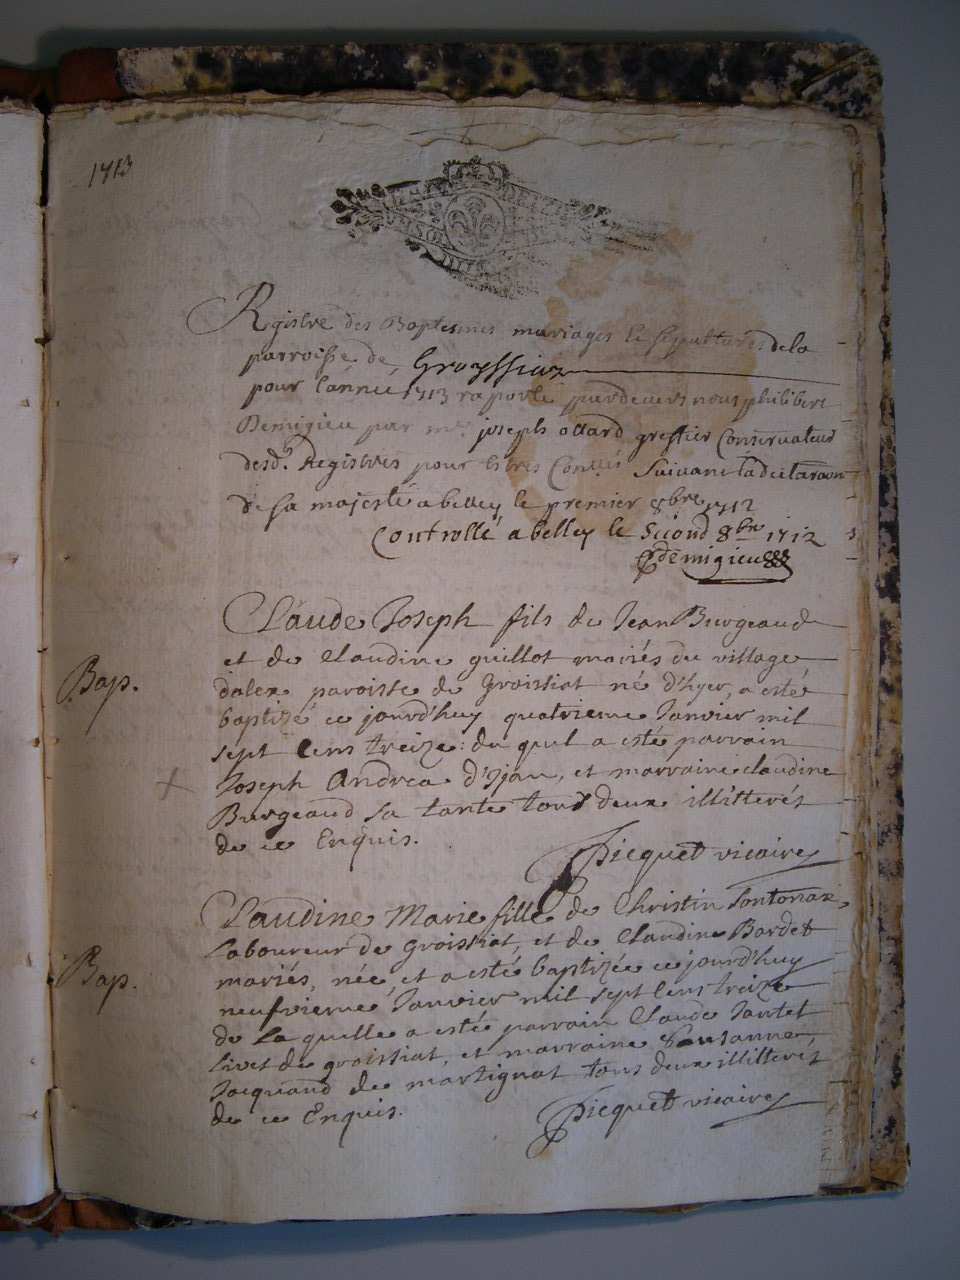 1713
Registre des Baptesmes mariages et sepultures de la
parroisse de Groyssiaz
pour l'année 1713 raporté pardevers nous philibert
Demigieu par me joseph ollard greffier Conservateur
desd. Registres pour estres Suivant la declaraon
de sa majesté a belley le premier 8bre 1712
Controllé a belley le Second 8bre 1712
Demigieu
Claude Joseph fils de Jean Burgeaud
et de Claudine guillot mariés du village
Bap.
dalex paroisse de Groissiat né d'hyer, a esté
baptizé ce jourd'huy quatrieme Janvier mil
sept Cens treize: du quel a esté parrain
Joseph Andrea d'Ijan, et marraine claudine
Burgeaud sa tante tous deux illitterés
de ce Enquis.
Picquet vicaire
Claudine Marie fille de Christin Tontonaz
Laboureur de Groissiat, et de Claudine Bardet
Bap.
mariés, née, et a esté baptizée ce jourd'huy
neufvieme Janvier mil sept Cens treize
de la quelle a estée parrain Claude Jantet
Livet de groissiat, et marraine Susanne
Jacquand de martignat tous deux illitterés
de ce Enquis.
Picquet vicaire